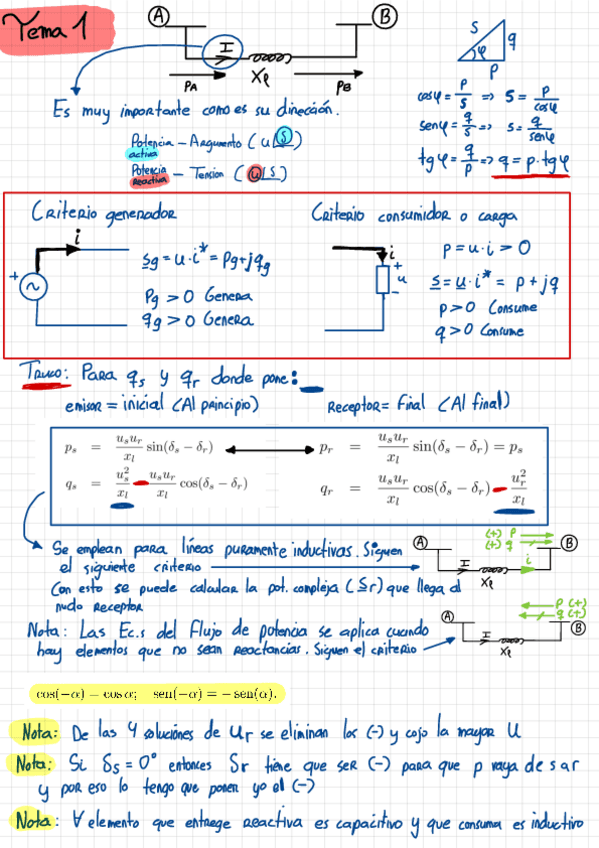 Tema 1
A
B
I
Xℓ
PA
PB
S
q
φ
P
Es muy importante como es su dirección.
cosφ = p/s => S = p/cosφ
senφ = q/s => s = q/senφ
tgφ = q/p => q = p·tgφ
Potencia activa – Argumento (u∠δ)
Potencia Reactiva – Tension (u∠δ)
Criterio generador
i
+
~
sg = u·i* = pg+jqg
Pg > 0 Genera
qg > 0 Genera
Criterio consumidor o carga
i
+
u
-
p = u·i > 0
s = u·i* = p + jq
p>0 Consume
q>0 Consume
Truco: Para qs y qr donde pone:
emisor = inicial (Al principio)
Receptor = Final (Al final)
ps = usur/xl sin(δs − δr)
pr = usur/xl sin(δs − δr) = ps
qs = us²/xl − usur/xl cos(δs − δr)
qr = usur/xl cos(δs − δr) − ur²/xl
Se emplean para líneas puramente inductivas. Siguen
el siguiente criterio
Con esto se puede calcular la pot. compleja (Sr) que llega al
nudo Receptor
A
(+) P
(+) q
B
I
Xℓ
i
Nota: Las Ec.s del Flujo de potencia se aplica cuando
hay elementos que no sean reactancias. Siguen el criterio
A
P (+)
q (+)
B
I
Xℓ
cos(−α) = cos α; sen(−α) = − sen(α).
Nota: De las 4 soluciónes de Ur se eliminan los (-) y cojo la mayor U
Nota: Si δs = 0° entonces δr tiene que ser (-) para que p vaya de s a r
y por eso lo tengo que poner yo el (-)
Nota: ∀ elemento que entrege reactiva es capacitivo y que consuma es inductivo